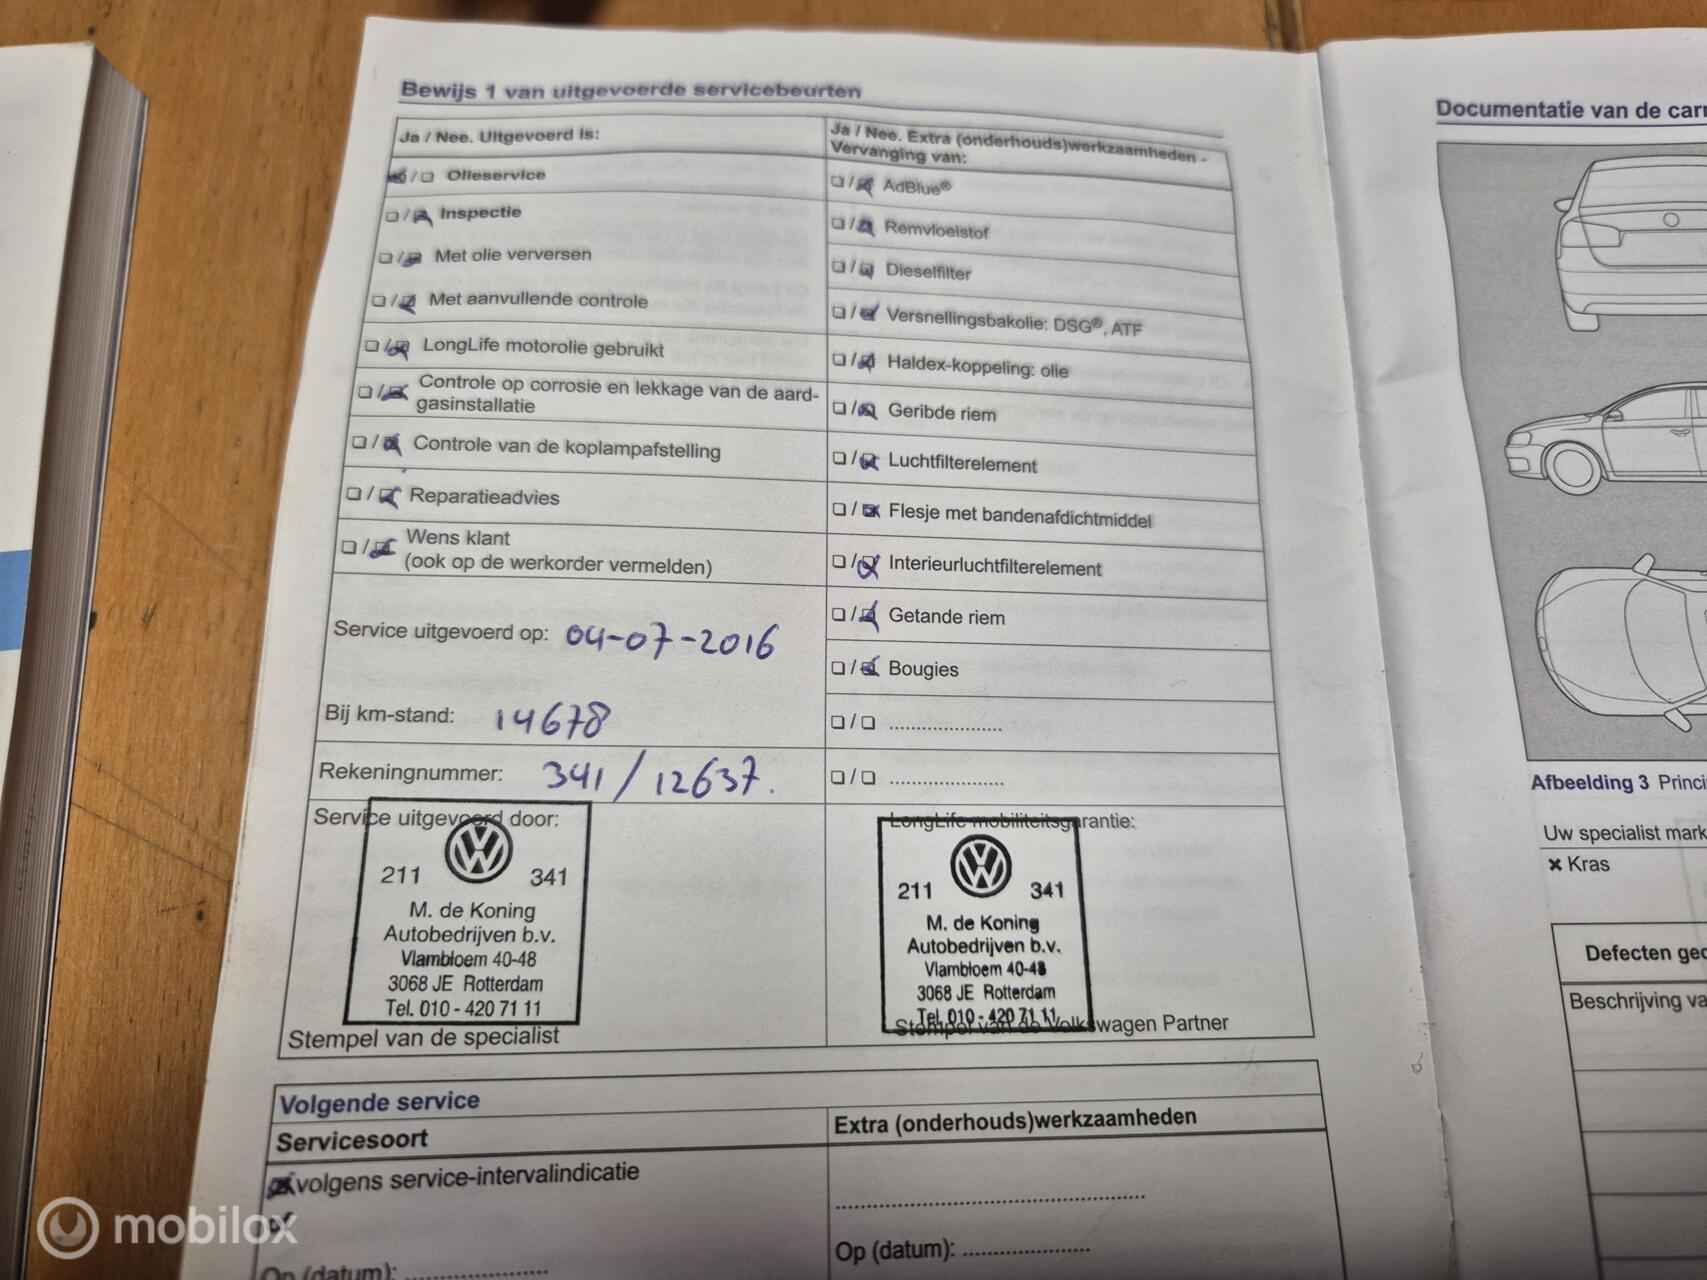 Bewijs 1 van uitgevoerde servicebeurten
Ja / Nee. Uitgevoerd is:
Olieservice
Inspectie
Met olie verversen
Met aanvullende controle
LongLife motorolie gebruikt
Controle op corrosie en lekkage van de aard-
gasinstallatie
Controle van de koplampafstelling
Reparatieadvies
Wens klant
(ook op de werkorder vermelden)
Service uitgevoerd op: 04-07-2016
Bij km-stand: 14678
Rekeningnummer: 341 / 12637.
Service uitgevoerd door:
211 341
M. de Koning
Autobedrijven b.v.
Vlambloem 40-48
3068 JE Rotterdam
Tel. 010 - 420 71 11
Stempel van de specialist
Ja / Nee. Extra (onderhouds)werkzaamheden -
Vervanging van:
AdBlue®
Remvloeistof
Dieselfilter
Versnellingsbakolie: DSG®, ATF
Haldex-koppeling: olie
Geribde riem
Luchtfilterelement
Flesje met bandenafdichtmiddel
Interieurluchtfilterelement
Getande riem
Bougies
LongLife mobiliteitsgarantie:
211 341
M. de Koning
Autobedrijven b.v.
Vlambloem 40-48
3068 JE Rotterdam
Tel. 010 - 420 71 11
Stempel van de Volkswagen Partner
Volgende service
Servicesoort
volgens service-intervalindicatie
of
Op (datum):
Extra (onderhouds)werkzaamheden
Op (datum):
Documentatie van de
Afbeelding 3
Uw specialist
× Kras
Defecten
Beschrijving
mobilox